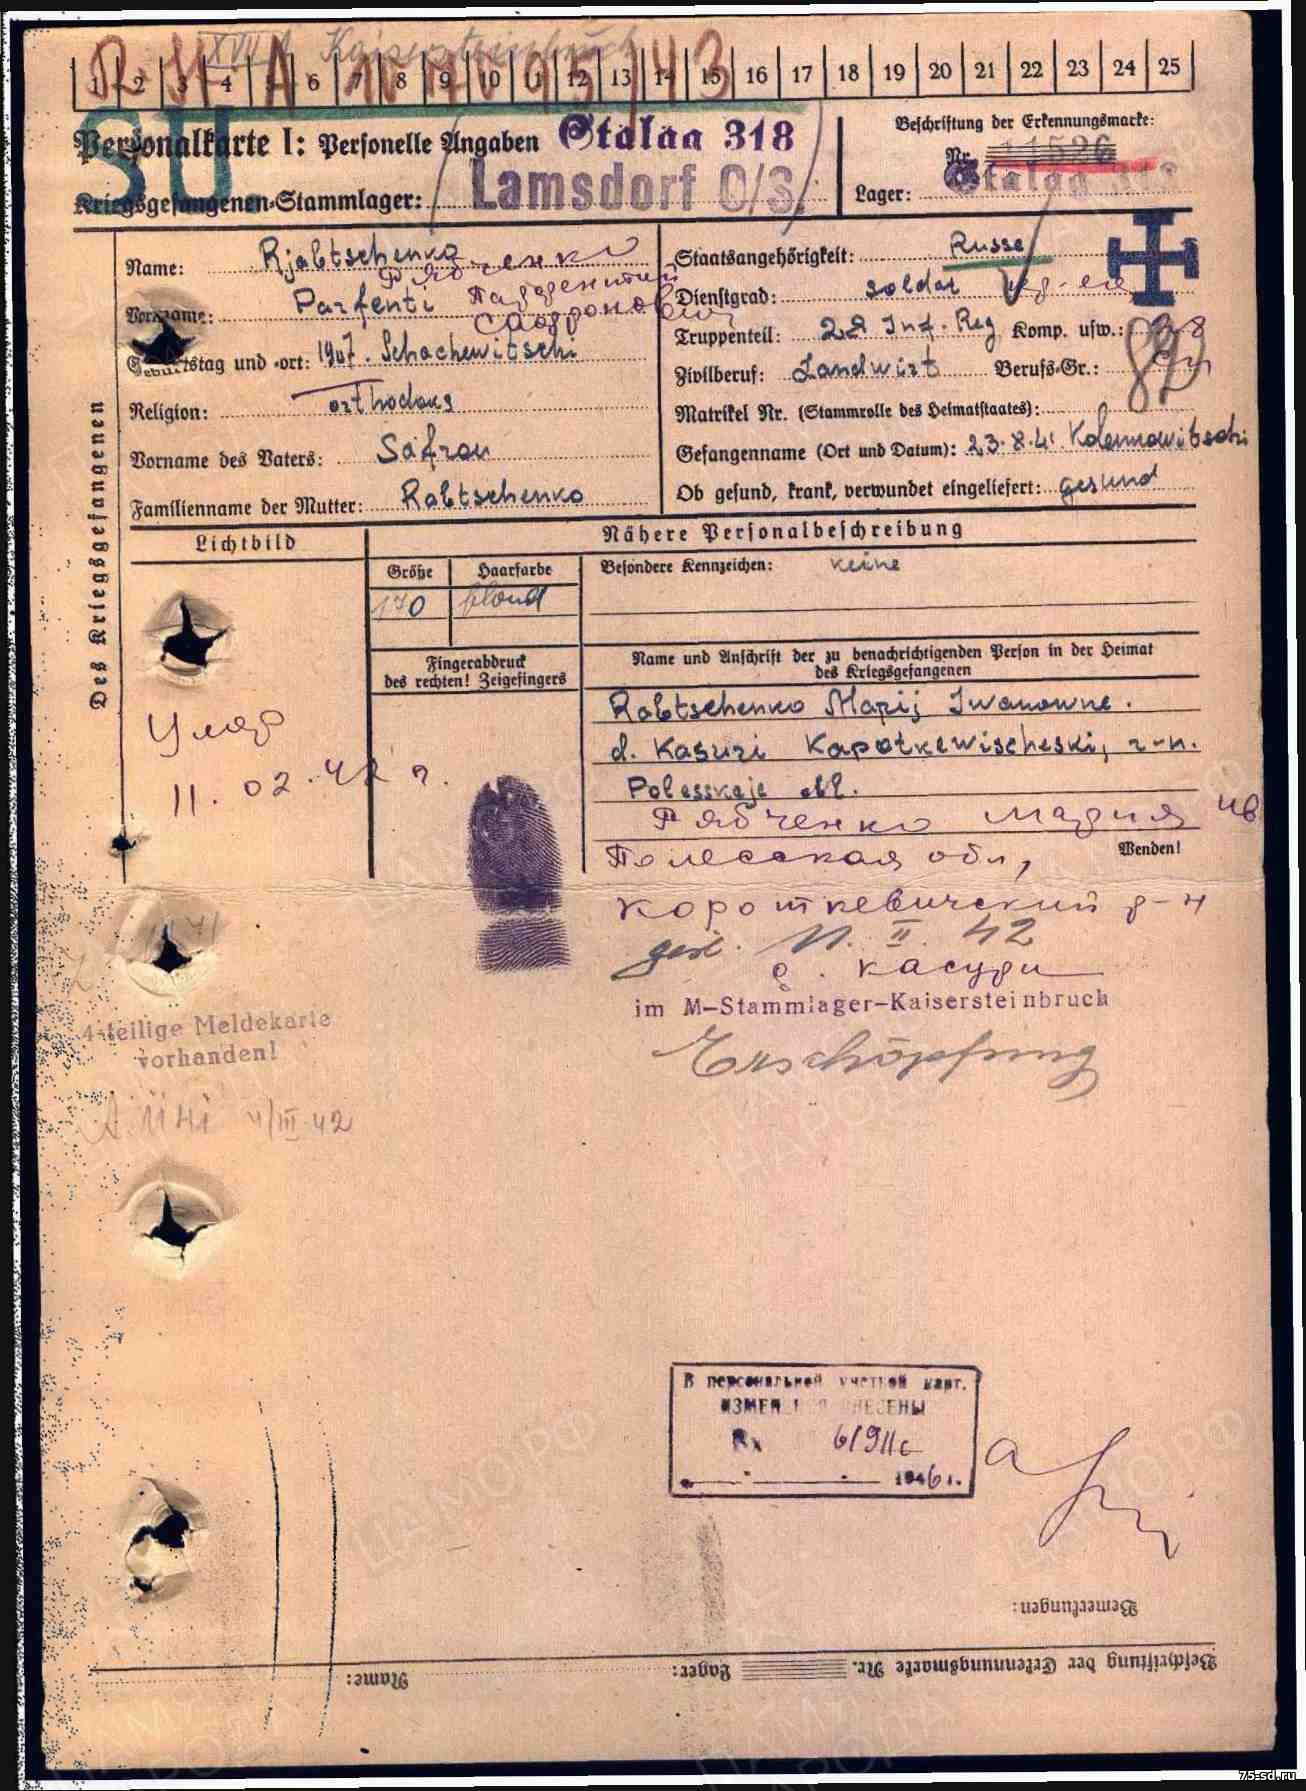 XVII A Kaisersteinbruch
1 2 3 4 5 6 7 8 9 10 11 12 13 14 15 16 17 18 19 20 21 22 23 24 25
SU
Personalkarte I: Personelle Angaben Stalag 318
Kriegsgefangenen-Stammlager: Lamsdorf O/S.
Beschriftung der Erkennungsmarke:
Nr. 11526
Lager: Stalag 318
Des Kriegsgefangenen
Name: Rjabtschenko
Рябченко
Vorname: Parfenti Парфентий
Сафронович
Geburtstag und -ort: 1907. Schachewitschi
Religion: orthodoxs
Vorname des Vaters: Safron
Familienname der Mutter: Rabtschenko
Staatsangehörigkeit: Russe
Dienstgrad: soldat
Truppenteil: 28 Inf. Reg Komp. usw.:
Zivilberuf: Landwirt Berufs-Gr.:
Matrikel Nr. (Stammrolle des Heimatstaates):
Gefangenname (Ort und Datum): 23.8.41. Kolenkowitschi
Ob gesund, krank, verwundet eingeliefert: gesund
Lichtbild
Nähere Personalbeschreibung
Größe Haarfarbe
170 blond
Besondere Kennzeichen: keine
Fingerabdruck
des rechten! Zeigefingers
Name und Anschrift der zu benachrichtigenden Person in der Heimat
des Kriegsgefangenen
Rabtschenko Marij Iwanowne.
d. Kasuri Kapatkewischeski, r-n.
Polesskaje obl.
Рябченко Мария Ив
Wenden!
Полесская обл,
Короткевичский р-н
gest. 11. II. 42
с. Касури
im M-Stammlager-Kaisersteinbruch
Erschöpfung
Умер
11. 02. 42 г.
4-teilige Meldekarte
vorhanden!
4/III 42
В персональной учетной карт.
ИЗМЕНЕНИЯ ВНЕСЕНЫ
1946 г.
Bemerkungen:
Beschriftung der Erkennungsmarke Nr. Lager: Name:
75-sd.ru